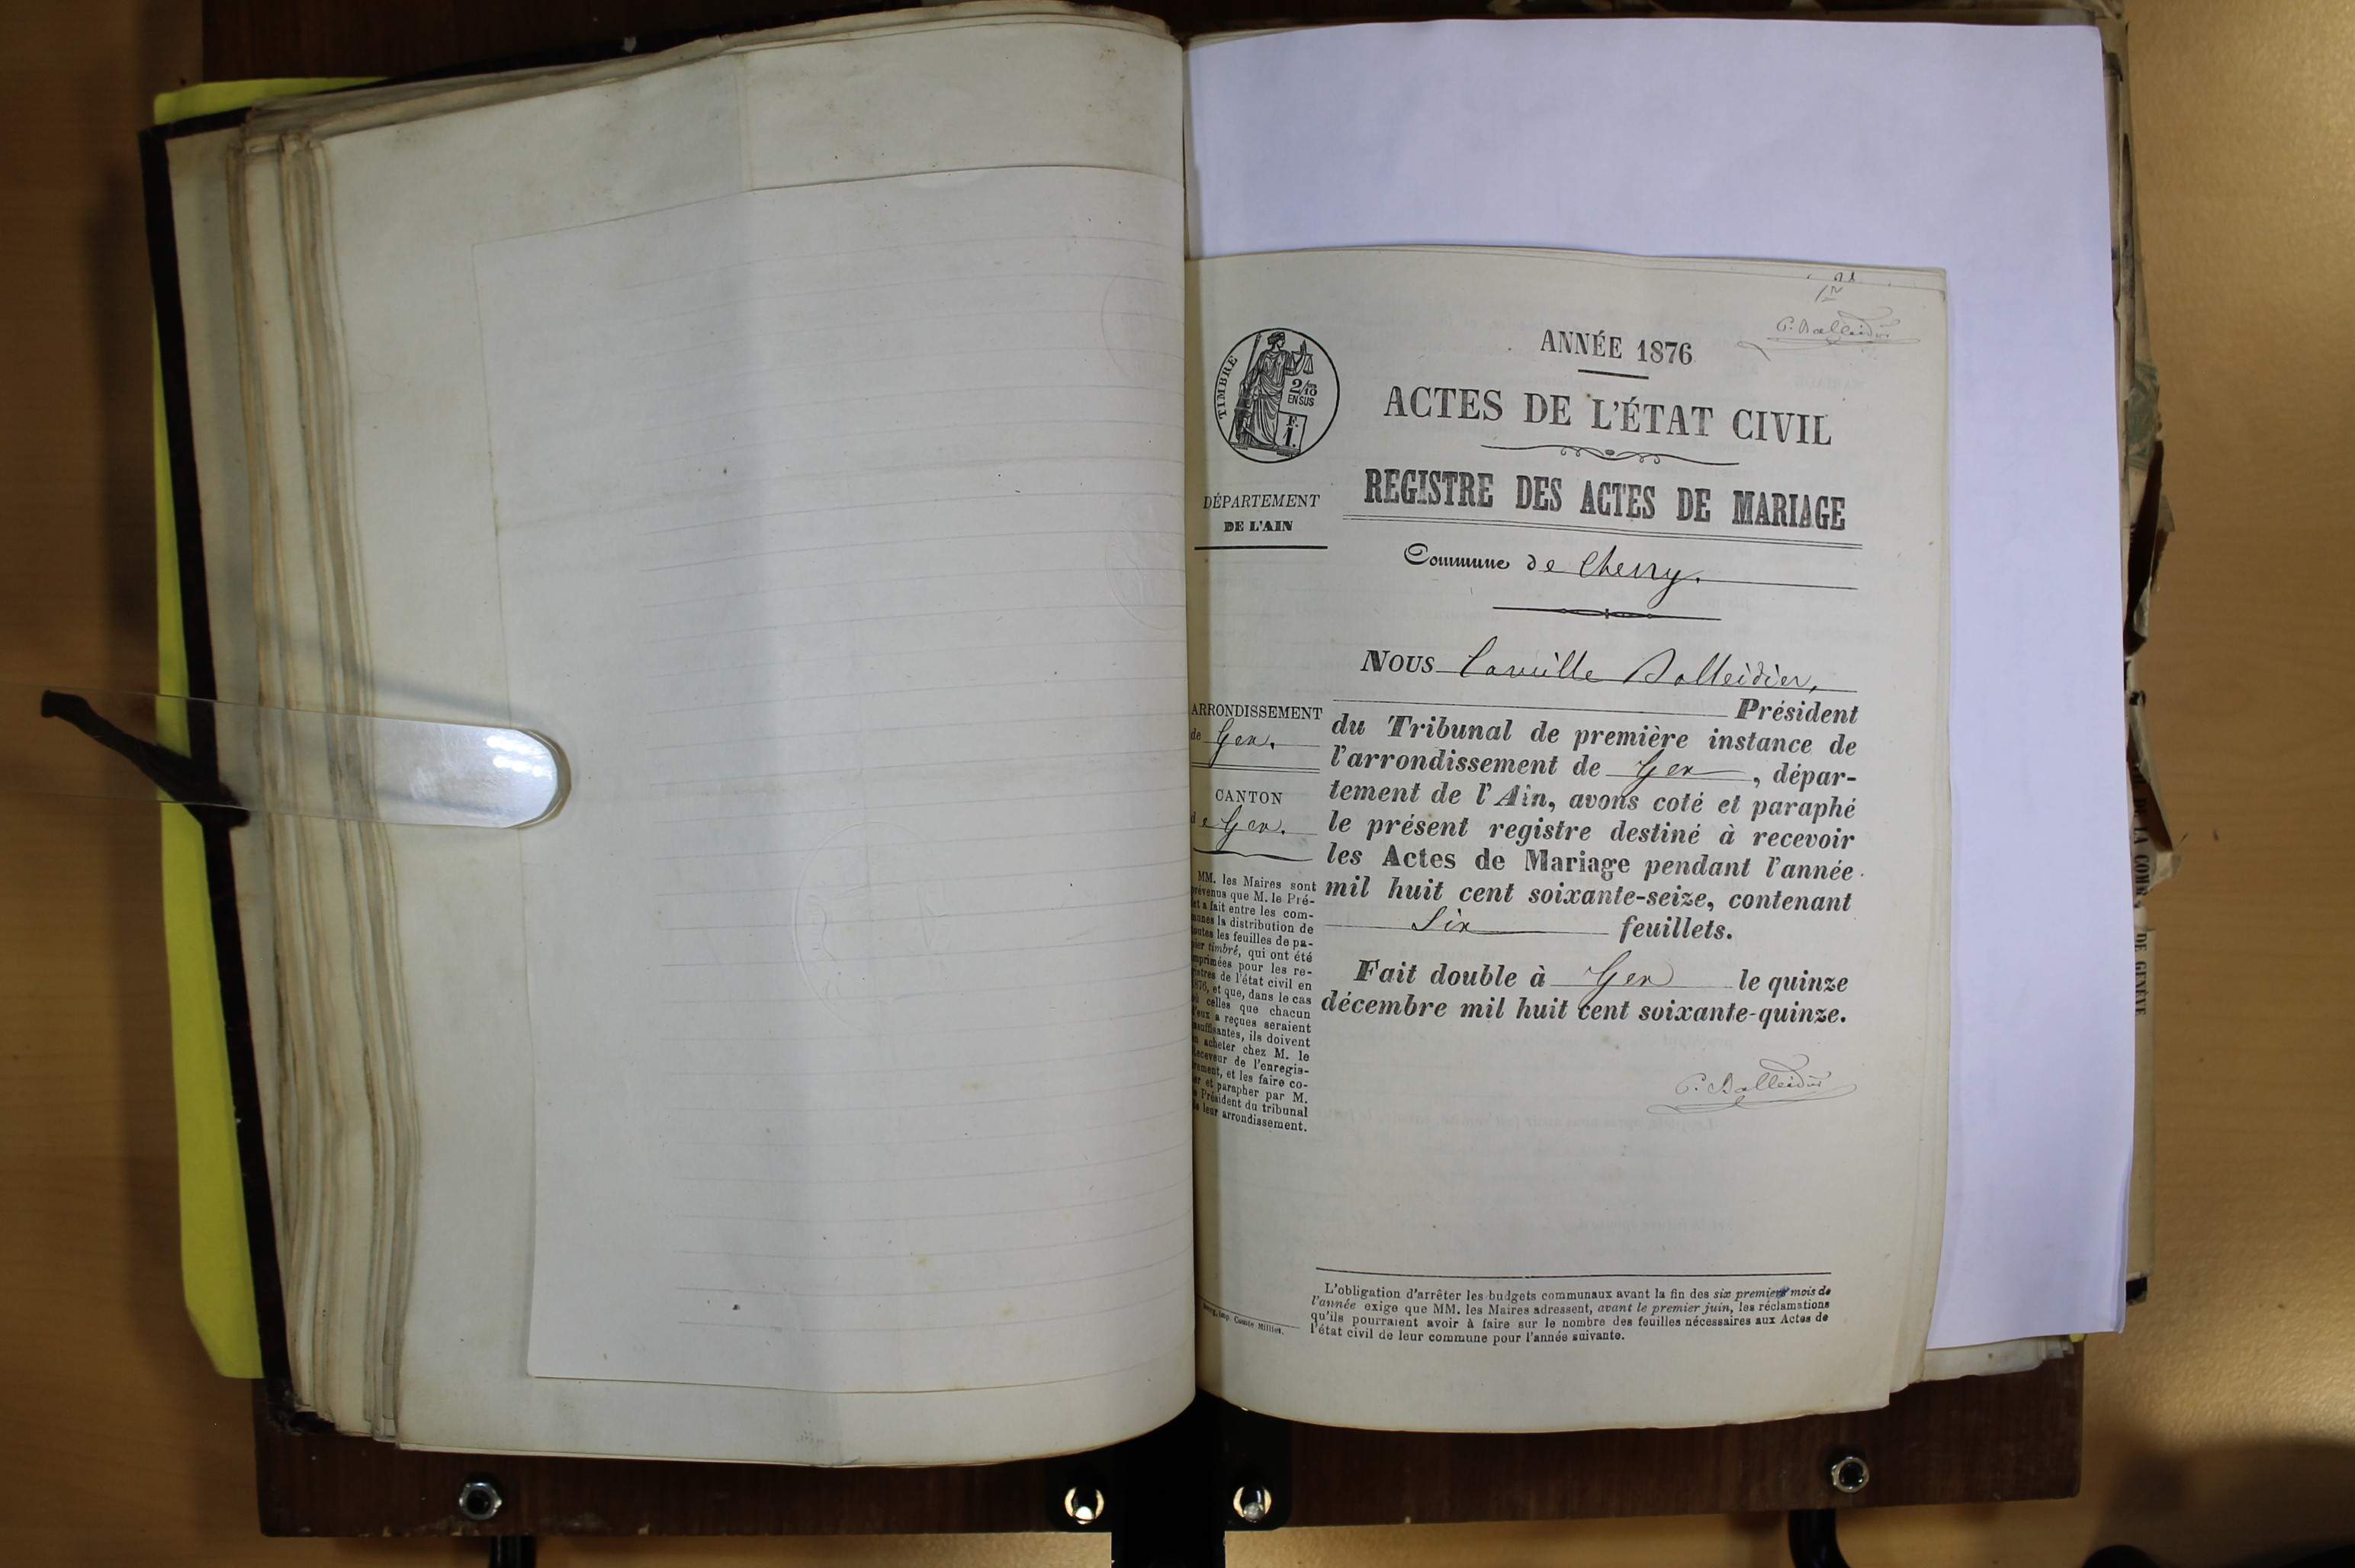 ANNÉE 1876
TIMBRE
2/10
EN SUS
F.
1.
ACTES DE L'ÉTAT CIVIL
REGISTRE DES ACTES DE MARIAGE
DÉPARTEMENT
DE L'AIN
Commune de Chevry.
Nous Camille Balleidier,
Président
du Tribunal de première instance de
l'arrondissement de Gex, dépar-
tement de l'Ain, avons coté et paraphé
le présent registre destiné à recevoir
les Actes de Mariage pendant l'année
mil huit cent soixante-seize, contenant
Six feuillets.
Fait double à Gex le quinze
décembre mil huit cent soixante-quinze.
C. Balleidier
ARRONDISSEMENT
de Gex.
CANTON
de Gex.
MM. les Maires sont
prévenus que M. le Pré-
fet a fait entre les com-
munes la distribution de
toutes les feuilles de pa-
pier timbré, qui ont été
imprimées pour les re-
gistres de l'état civil en
1876, et que, dans le cas
où celles que chacun
d'eux a reçues seraient
insuffisantes, ils doivent
en acheter chez M. le
Receveur de l'enregis-
trement, et les faire co-
ter et parapher par M.
le Président du tribunal
de leur arrondissement.
L'obligation d'arrêter les budgets communaux avant la fin des six premiers mois de
l'année exige que MM. les Maires adressent, avant le premier juin, les réclamations
qu'ils pourraient avoir à faire sur le nombre des feuilles nécessaires aux Actes de
l'état civil de leur commune pour l'année suivante.
Bourg, imp. Comte-Milliet.
DE LA COUR DE GENÈVE